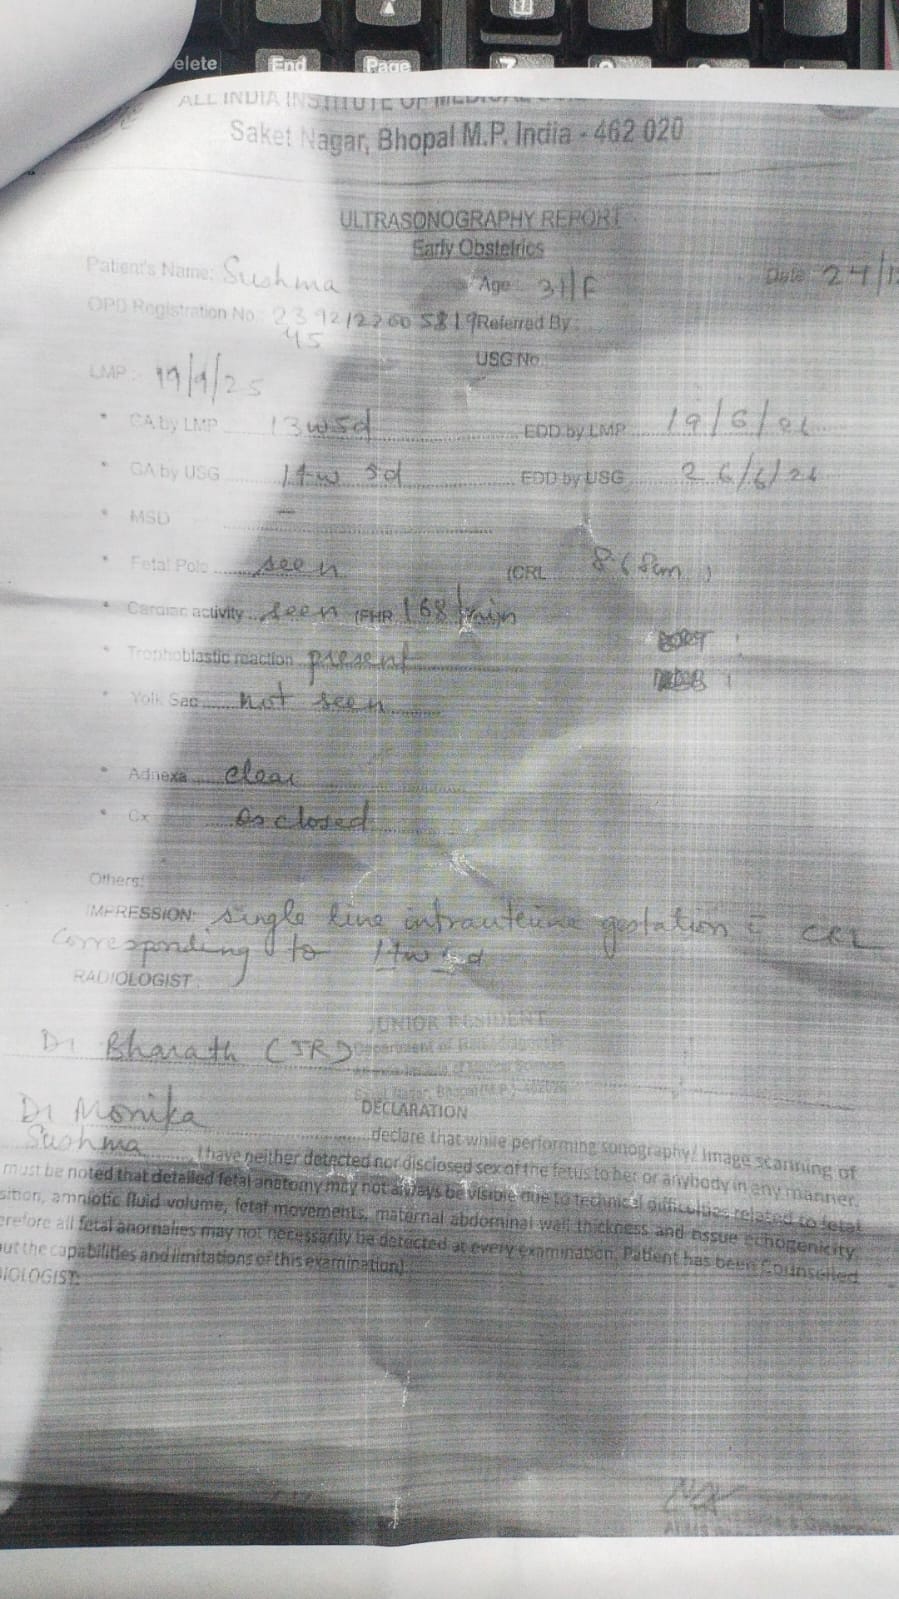 elete
End
Page
ALL INDIA INSTITUTE OF MEDICAL
Saket Nagar, Bhopal M.P. India - 462 020
ULTRASONOGRAPHY REPORT
Early Obstetrics
Patient's Name: Sushma Age: 31/F Date: 24/1
OPD Registration No: Referred By:
45
USG No.
LMP: 19/9/25
GA by LMP 13w5d EDD by LMP 19/6/26
GA by USG EDD by USG 26/6/26
MSD -
Fetal Pole seen (CRL )
Cardiac activity seen (FHR 168/min
Trophoblastic reaction present
Yolk Sac not seen
Adnexa clear
Cx os closed
Others:
IMPRESSION: single live intrauterine gestation c̄ CRL
corresponding to
RADIOLOGIST
JUNIOR RESIDENT
Dr Bharath (JR)
Dr Monika DECLARATION
declare that while performing sonography/ image scanning of
Sushma I have neither detected nor disclosed sex of the fetus to her or anybody in any manner.
must be noted that detailed fetal anatomy may not always be visible due to technical difficulties related to fetal
sition, amniotic fluid volume, fetal movements, maternal abdominal wall thickness and tissue echogenicity.
erefore all fetal anomalies may not necessarily be detected at every examination. Patient has been Counselled
out the capabilities and limitations of this examination)
IOLOGIST: